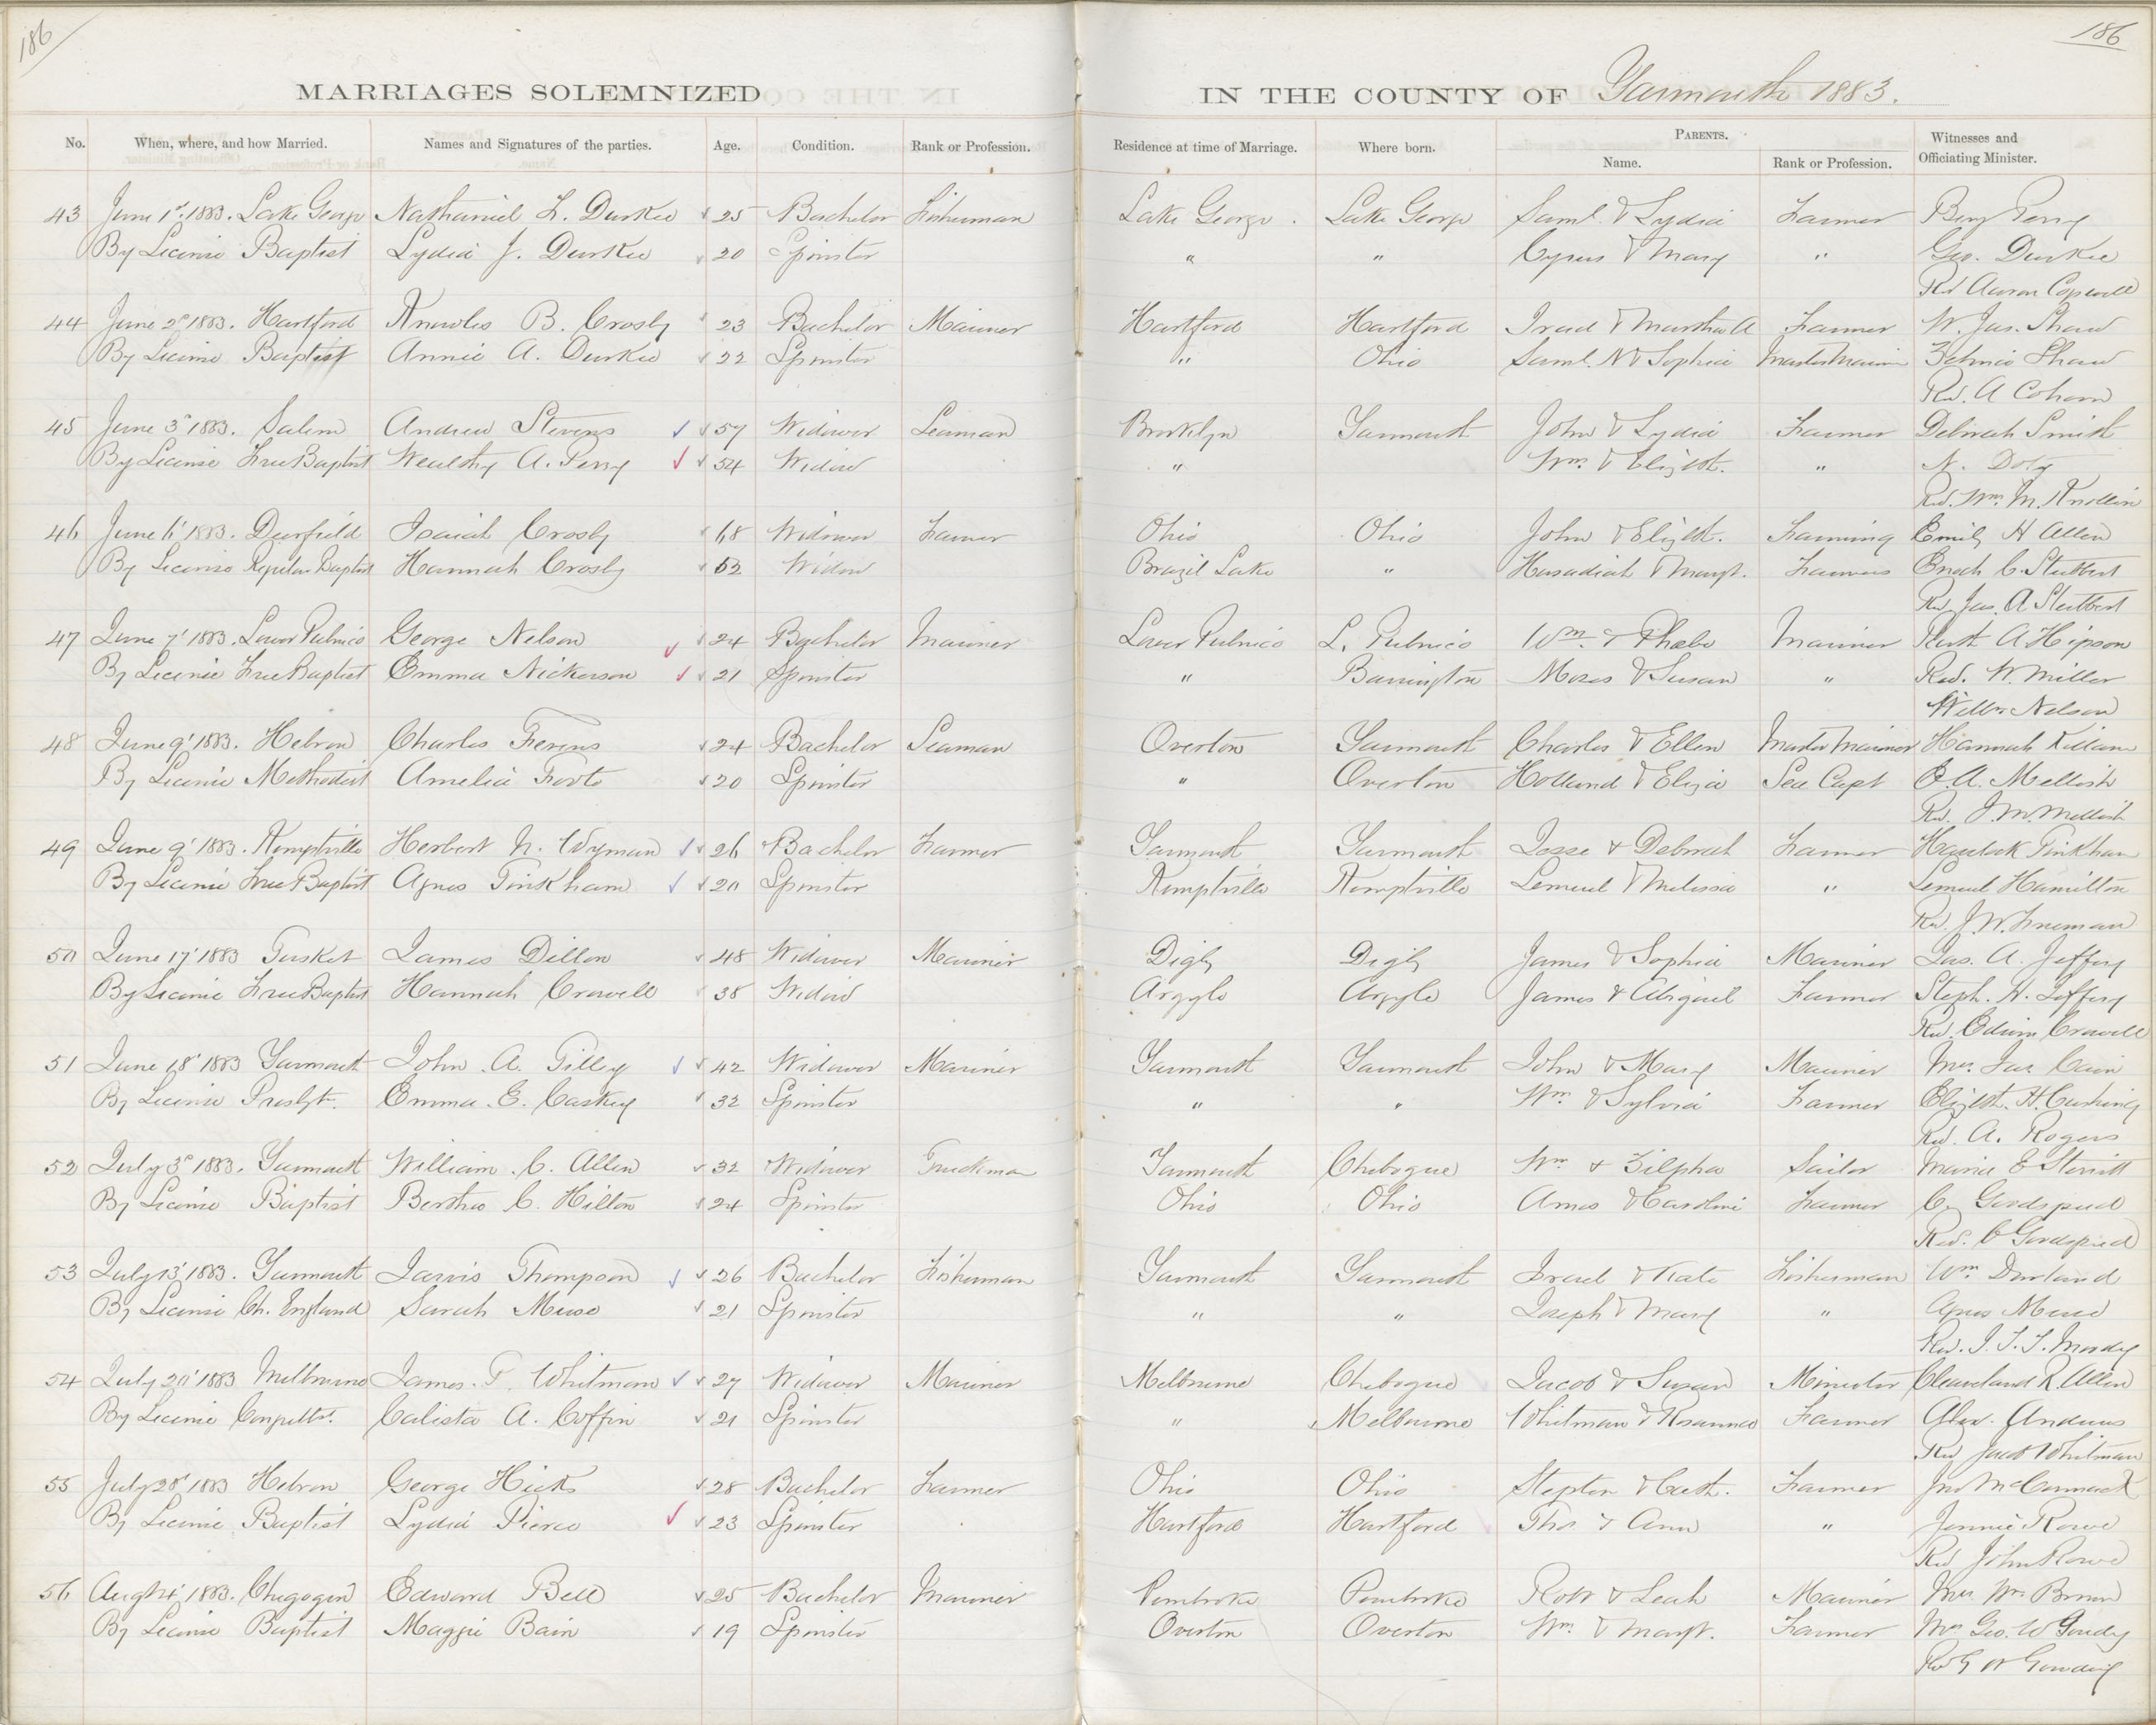 186
186
MARRIAGES SOLEMNIZED IN THE COUNTY OF Yarmouth 1883.
No. When, where, and how Married. Names and Signatures of the parties. Age. Condition. Rank or Profession. Residence at time of Marriage. Where born. PARENTS. Name. Rank or Profession. Witnesses and Officiating Minister.
43 June 1st 1883. Lake George Nathaniel L. Durkee 25 Bachelor Fisherman Lake George. Lake George Saml. & Lydia Farmer Benj Perry
By License Baptist Lydia J. Durkee 20 Spinster " " Cyrus & Mary " Geo. Durkee
Rd Aaron Cogswell
44 June 2d 1883. Hartford Knowles B. Crosby 23 Bachelor Mariner Hartford Hartford Israel & Martha A Farmer W. Jas. Shaw
By License Baptist Annie A. Durkee 22 Spinster " Ohio Saml. N & Sophia Master Mariner Shaw
Rd. A Cohoon
45 June 3d 1883. Salem Andrew Stevens 57 Widower Seaman Brooklyn Yarmouth John & Lydia Farmer Deborah Smith
By License Free Baptist Wealthy A. Perry 54 Widow " Wm. & Elizbth. " N. Doty
Rd. Wm. M. Knollin
46 June 6' 1883. Deerfield Isaiah Crosby 68 Widower Farmer Ohio Ohio John & Elizbth. Farming Emily H Allen
By License Regular Baptist Hannah Crosby 52 Widow Brazil Lake " & Margt. Farmers Enoch C. Stubbert
Rd. Jas. A Stubbert
47 June 7' 1883. Lower Pubnico George Nelson 24 Bachelor Mariner Lower Pubnico L. Pubnico Wm. & Phebe Mariner Ruth A Hipson
By License Free Baptist Emma Nickerson 21 Spinster " Barrington Moses & Susan " Rd. W. Miller
Nelson
48 June 9' 1883. Hebron Charles Ferens 24 Bachelor Seaman Overton Yarmouth Charles & Ellen Master Mariner Hannah Killam
By License Methodist Amelia Foote 20 Spinster " Overton Holland & Eliza Sea Capt A. Mellish
Rd. J. M. Mellish
49 June 9' 1883. Kemptville Herbert N. Wyman 26 Bachelor Farmer Yarmouth Yarmouth Jesse & Deborah Farmer Havelock Tinkham
By License Free Baptist Agnes Tinkham 20 Spinster Kemptville Kemptville Lemuel & Melissa " Lemuel Hamilton
Rd. J. W. Freeman
50 June 17' 1883 Tusket James Dillon 48 Widower Mariner Digby Digby James & Sophia Mariner Jas. A. Jeffery
By License Free Baptist Hannah Crowell 38 Widow Argyle Argyle James & Abigail Farmer Steph. H. Jeffery
Rd. Edwin Crowell
51 June 18' 1883 Yarmouth John A. Tilley 42 Widower Mariner Yarmouth Yarmouth John & Mary Mariner Mrs. Jas. Cain
By License Presbytn. Emma E. Caskey 32 Spinster " " Wm & Sylvia Farmer Elizbth. H. Cushing
Rd. A. Rogers
52 July 3d 1883. Yarmouth William C. Allen 32 Widower Truckman Yarmouth Chebogue Wm & Zilpha Sailor Maria E Sterritt
By License Baptist Bertha C. Hilton 24 Spinster Ohio Ohio Amos & Caroline Farmer C. Goodspeed
Rd. C Goodspeed
53 July 13' 1883. Yarmouth Jarvis Thompson 26 Bachelor Fisherman Yarmouth Yarmouth Israel & Kate Fisherman Wm Durland
By License Ch. England Sarah Muse 21 Spinster " " Joseph & Mary " Agnes Muse
Rd. J. T. T. Moody
54 July 20' 1883 Melbourne James T. Whitman 27 Widower Mariner Melbourne Chebogue Jacob & Susan Minister Cleaveland R. Allen
By License Calista A. Coffin 21 Spinster " Melbourne Whitman & Rosanna Farmer Alex. Andrews
Rd Jacob Whitman
55 July 28' 1883 Hebron George Hicks 28 Bachelor Farmer Ohio Ohio & Cath. Farmer Jno McCormack
By License Baptist Lydia Pierce 23 Spinster Hartford Hartford Thos & Ann " Jennie Rowe
Rd John Rowe
56 Augt 4' 1883. Chegoggin Edward Bell 25 Bachelor Mariner Pembroke Pembroke Robt & Leah Mariner Mrs Wm. Brown
By License Baptist Maggie Bain 19 Spinster Overton Overton Wm. & Margt. Farmer Mrs Geo. W Goudy
Rd G W